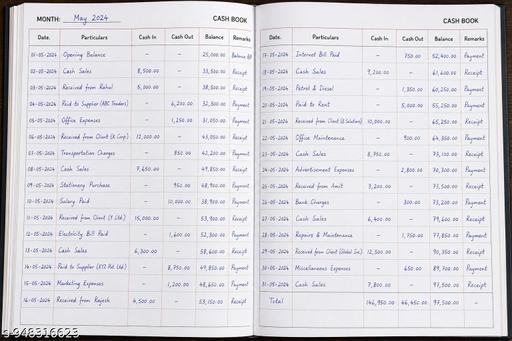 MONTH: May 2024 CASH BOOK
Date. Particulars Cash In Cash Out Balance Remarks
01-05-2024 Opening Balance – – 25,000.00 Balance B/f
02-05-2024 Cash Sales 8,500.00 – 33,500.00 Receipt
03-05-2024 Received from Rahul 5,000.00 – 38,500.00 Receipt
04-05-2024 Paid to Supplier (ABC Traders) – 6,200.00 32,300.00 Payment
05-05-2024 Office Expenses – 1,250.00 31,050.00 Payment
06-05-2024 Received from Client (K Corp.) 12,000.00 – 43,050.00 Receipt
07-05-2024 Transportation Charges – 850.00 42,200.00 Payment
08-05-2024 Cash Sales 7,650.00 – 49,850.00 Receipt
09-05-2024 Stationery Purchase – 950.00 48,900.00 Payment
10-05-2024 Salary Paid – 10,000.00 38,900.00 Payment
11-05-2024 Received from Client (Y Ltd.) 15,000.00 – 53,900.00 Receipt
12-05-2024 Electricity Bill Paid – 1,600.00 52,300.00 Payment
13-05-2024 Cash Sales 6,300.00 – 58,600.00 Receipt
14-05-2024 Paid to Supplier (XYZ Pvt. Ltd.) – 8,750.00 49,850.00 Payment
15-05-2024 Marketing Expenses – 1,200.00 48,650.00 Payment
16-05-2024 Received from Rajesh 4,500.00 – 53,150.00 Receipt
CASH BOOK
Date. Particulars Cash In Cash Out Balance Remarks
17-05-2024 Internet Bill Paid – 750.00 52,400.00 Payment
18-05-2024 Cash Sales 9,200.00 – 61,600.00 Receipt
19-05-2024 Petrol & Diesel – 1,350.00 60,250.00 Payment
20-05-2024 Paid to Rent – 5,000.00 55,250.00 Payment
21-05-2024 Received from Client 10,000.00 – 65,250.00 Receipt
22-05-2024 Office Maintenance – 900.00 64,350.00 Payment
23-05-2024 Cash Sales 8,750.00 – 73,100.00 Receipt
24-05-2024 Advertisement Expenses – 2,800.00 70,300.00 Payment
25-05-2024 Received from Amit 3,200.00 – 73,500.00 Receipt
26-05-2024 Bank Charges – 300.00 73,200.00 Payment
27-05-2024 Cash Sales 6,400.00 – 79,600.00 Receipt
28-05-2024 Repairs & Maintenance – 1,750.00 77,850.00 Payment
29-05-2024 Received from Client (Global Inc.) 12,500.00 – 90,350.00 Receipt
30-05-2024 Miscellaneous Expenses – 650.00 89,700.00 Payment
31-05-2024 Cash Sales 7,800.00 – 97,500.00 Receipt
Total 146,950.00 46,450.00 97,500.00 –
S-948316623